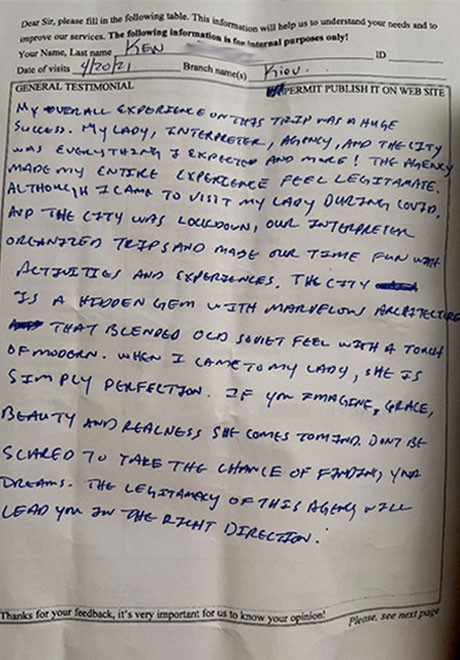 Dear Sir, please fill in the following table. This information will help us to understand your needs and to
improve our services. The following information is for internal purposes only!
Your Name, Last name KEN ID
Date of visits 4/20/21 Branch name(s) Kiev.
GENERAL TESTIMONIAL PERMIT PUBLISH IT ON WEB SITE
MY OVERALL EXPERIENCE ON THIS TRIP WAS A HUGE
SUCCESS. MY LADY, INTERPRETER, AGENCY, AND THE CITY
WAS EVERYTHING I EXPECTED AND MORE! THE AGENCY
MADE MY ENTIRE EXPERIENCE FEEL LEGITAMATE.
ALTHOUGH I CAME TO VISIT MY LADY DURING COVID,
AND THE CITY WAS LOCKDOWN, OUR INTERPRETER
ORGANIZED TRIPS AND MADE OUR TIME FUN WITH
ACTIVITIES AND EXPERIENCES. THE CITY
IS A HIDDEN GEM WITH MARVELOUS ARCHITECTURE
THAT BLENDED OLD SOVIET FEEL WITH A TOUCH
OF MODERN. WHEN I CAME TO MY LADY, SHE IS
SIMPLY PERFECTION. IF YOU IMAGINE, GRACE,
BEAUTY AND REALNESS SHE COMES TO MIND. DONT BE
SCARED TO TAKE THE CHANCE OF FINDING YOUR
DREAMS. THE LEGITAMECY OF THIS AGENCY WILL
LEAD YOU IN THE RIGHT DIRECTION.
Thanks for your feedback, it's very important for us to know your opinion! Please, see next page